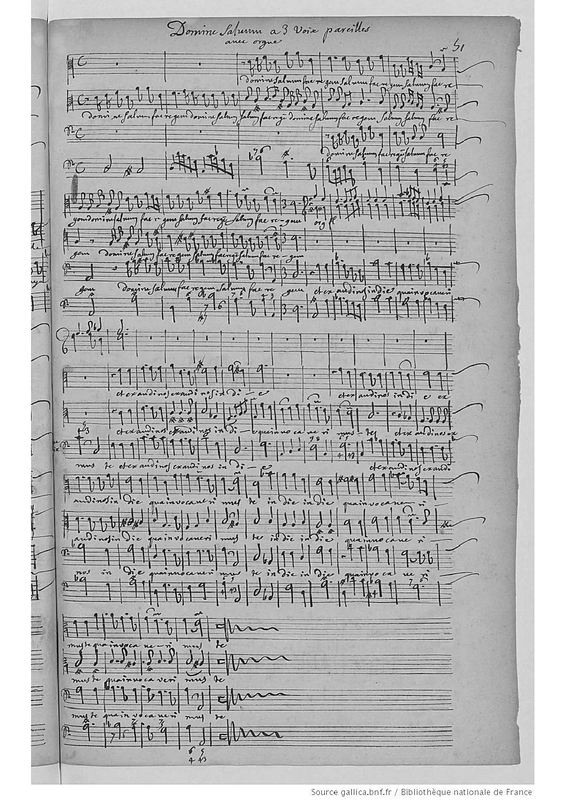 Domine Salvum a 3 Voix pareilles
avec orgue
51
domine salvum fac regem salvum fac re
domine salvum fac regem domine salvum fac regem salvum fac re
domine salvum fac regem salvum fac re
gem domine salvum fac regem salvum fac regem salvum fac re-gem
gem domine salvum fac regem salvum fac regem salvum fac re gem
gem domine salvum fac regem salvum fac re gem et exaudi nos in die qua invocaveri
et exaudi nos exaudi nos in di-e et exaudi nos in di e ex
et exaudi nos exaudi nos in di-e qua invo ca ve ri mus-te et exaudi nos ex
mus te et exaudi nos exaudi nos in di-e et exaudi nos exaudi
audi nos in die qua invocaveri mus te in die in die qua invocave ri
audi nos in die qua invocaveri mus te in die in die qua invocave ri
nos in die qua invocaveri mus te in die in die qua invoca ve ri
mus te qua invoca ve-ri mus te
mus te qua invoca veri mus te
mus te qua in voca veri mus te
Source gallica.bnf.fr / Bibliothèque nationale de France